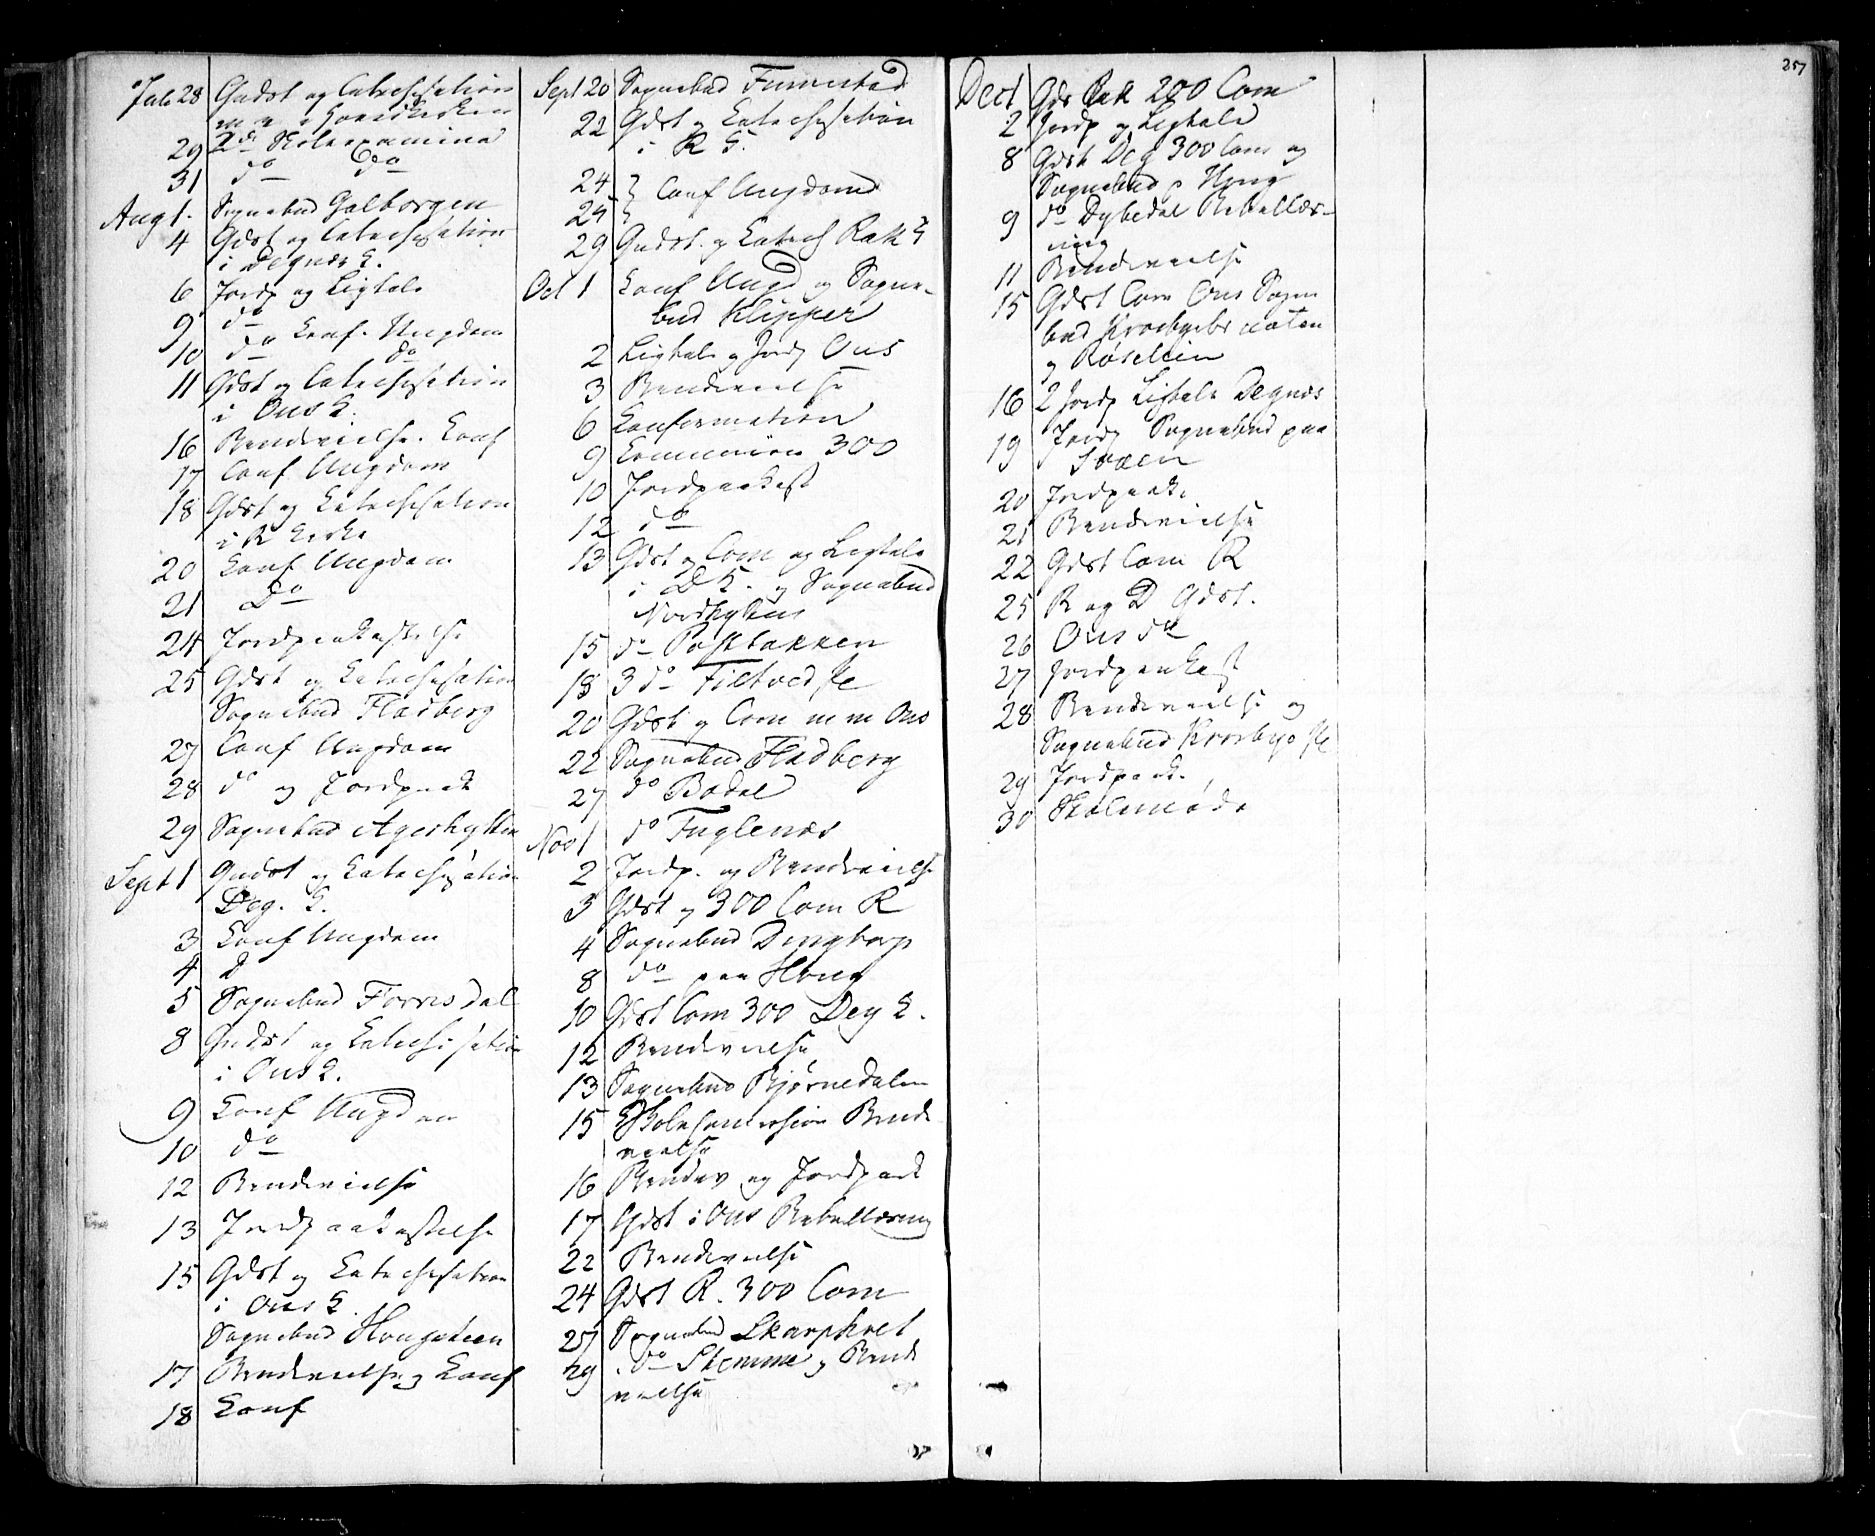 Juli 28 Gudst og Catechisation
m v i Hovedkirken
29 2de Skoleexamina
31 do do
Aug 1. Sognebud Galborgen
4 Gdst og Catechisation
i Degnæs K.
6 Jordp og Ligtale
9 do
10 do Conf. Ungdom
do
11 Gdst og Catechisation
i Ons K.
16 Brudevielse. Conf
17 Conf Ungdom
18 Gdst og Catechisation
i R Kirke
20 Conf Ungdom
21 Do
24 Jordpaakastelse
25 Gdst og Catechisation
Sognebud Fladberg
27 Conf Ungdom
28 do og Jordpaak
29 Sognebud Agerhytten
Sept 1 Gudst og Catechisation
Deg. K.
3 Conf Ungdom
4 D
5 Sognebud Forrisdal
8 Gudst og Catechisation
i Ons K.
9 Conf Ungdom
10 do
12 Brudevielse
13 Jordpaakastelse
15 Gdst og Catechisation
i Ons K.
Sognebud Hougsteen
17 Brudevielse og Conf
18 Conf
Sept 20 Sognebud
22 Gdst og Catechisation
i R K.
24 } Conf Ungdom
25 }
29 Gudst. og Catech Rak K
Oct 1 Conf Ungd og Sogne-
bud Klipper
2 Ligtale og Jordp Ons
3 Brudevielse
6 Confirmation
9 Communion 300
10 Jordpaakast
12 do
13 Gdst og Com og Ligtale
i D K. og Sognebud
Nordhytten
15 do Paskbakken
18 3 do Filtvedfle
20 Gdst og Com m m Ons
22 Sognebud Fladberg
27 do Bødal
Nov 1 do Fuglenæs
2 Jordp. og Brudevielse
3 Gdst og 300 Com R
4 Sognebud Dingtorp
8 do paa Houg
10 Gdst Com 300 Deg K.
12 Brudevielse
13 Sognebud Bjørnedalen
15 Skolecommission Brude
vielse
16 Brudev og Jordpaak
17 Gdst i Ons Bibellæsning
22 Brudevielse
24 Gdst R. 300 Com
27 Sognebud Skarpholt
29 do Stemme og Brude
vielse
257
Dec 1 Gds Rak 200 Com
2 Jordp og Ligtale
8 Gdst Deg 300 Com og
Sognebud p Houg
9 do Dybedal Bibellæs-
ning
11 Brudevielse
15 Gdst Com Ons Sogne
bud
og Røsekin
16 2 Jordp Ligtale Degnæs
19 Jordp Sognebud paa
Svaen
20 Jordpaak.
21 Brudevielse
22 Gdst Com R
25 R og D Gdst.
26 Ons do
27 Jordpaakast
28 Brudevielse og
Sognebud Krosbyefle
29 Jordpaak.
30 Skolemøde